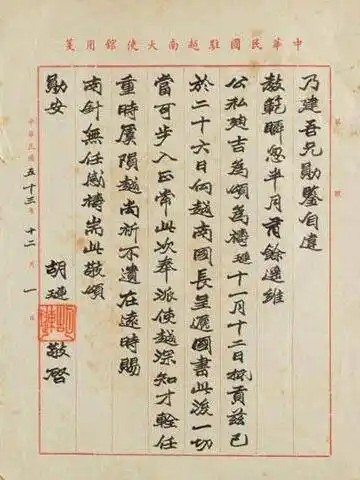 中華民國駐越南大使館用箋
第 號
乃建吾兄勛鑒自違
教範瞬忽半月有餘遙維
公私迪吉為頌為禱璉十一月十二日抵貢茲已
於二十六日向越南國長呈遞國書此後一切
當可步入正常此次奉派使越深知才輇任
重時虞隕越尚祈不遺在遠時賜
南針無任感禱耑此敬頌
勛安
胡璉 敬啓
中華民國五十三年十二月一日